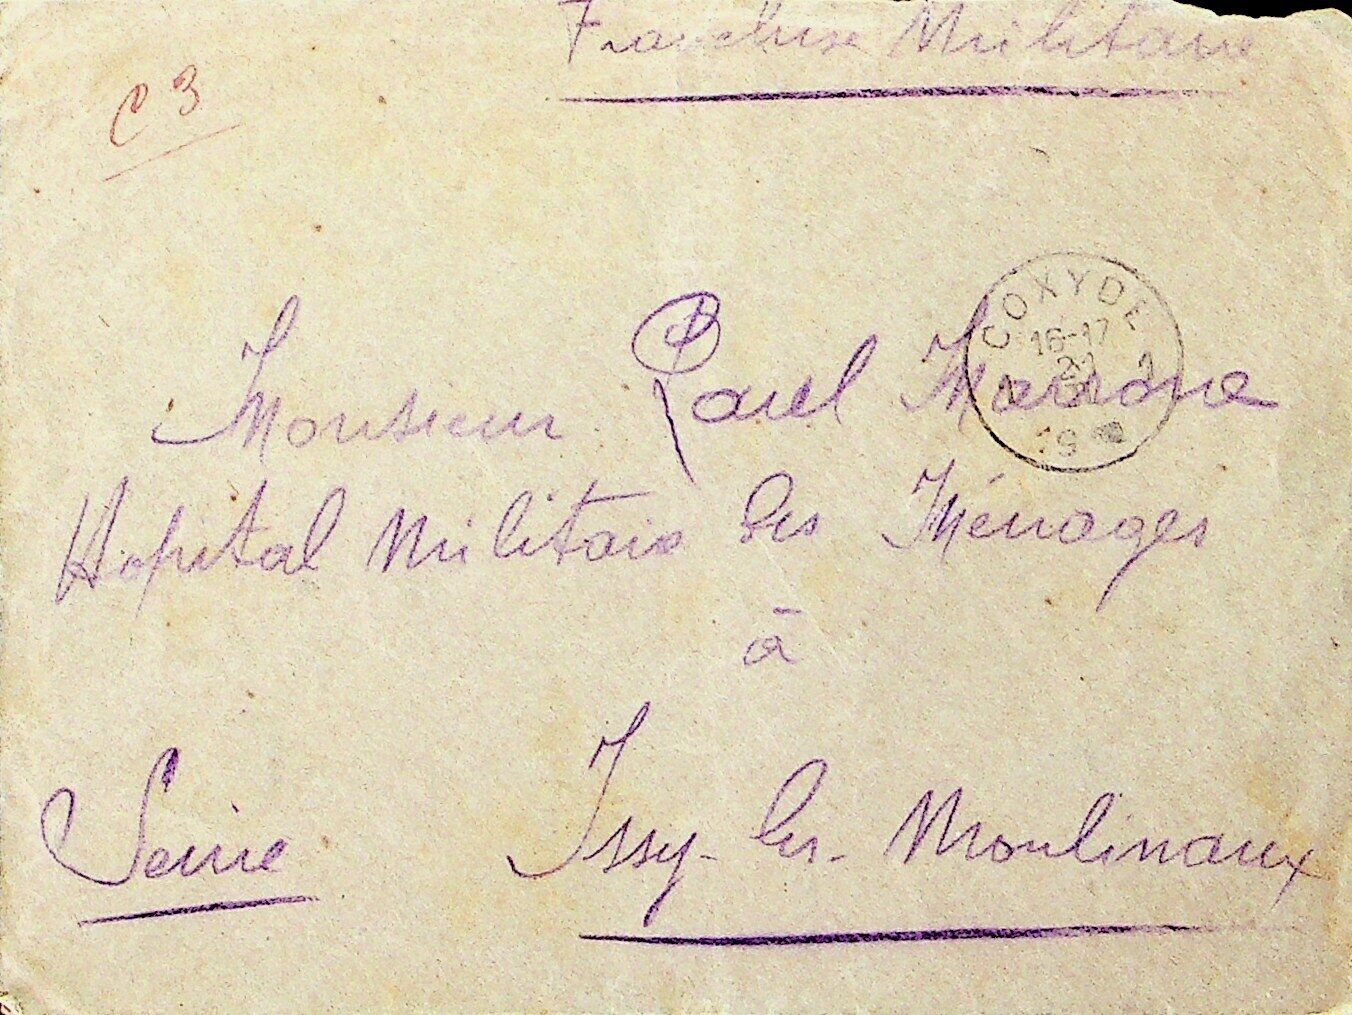 Franchise Militaire
C 3
COXYDE
16-17
21
19
Monsieur Paul
Hopital Militaire des Ménages
à
Issy-les-Moulinaux
Seine